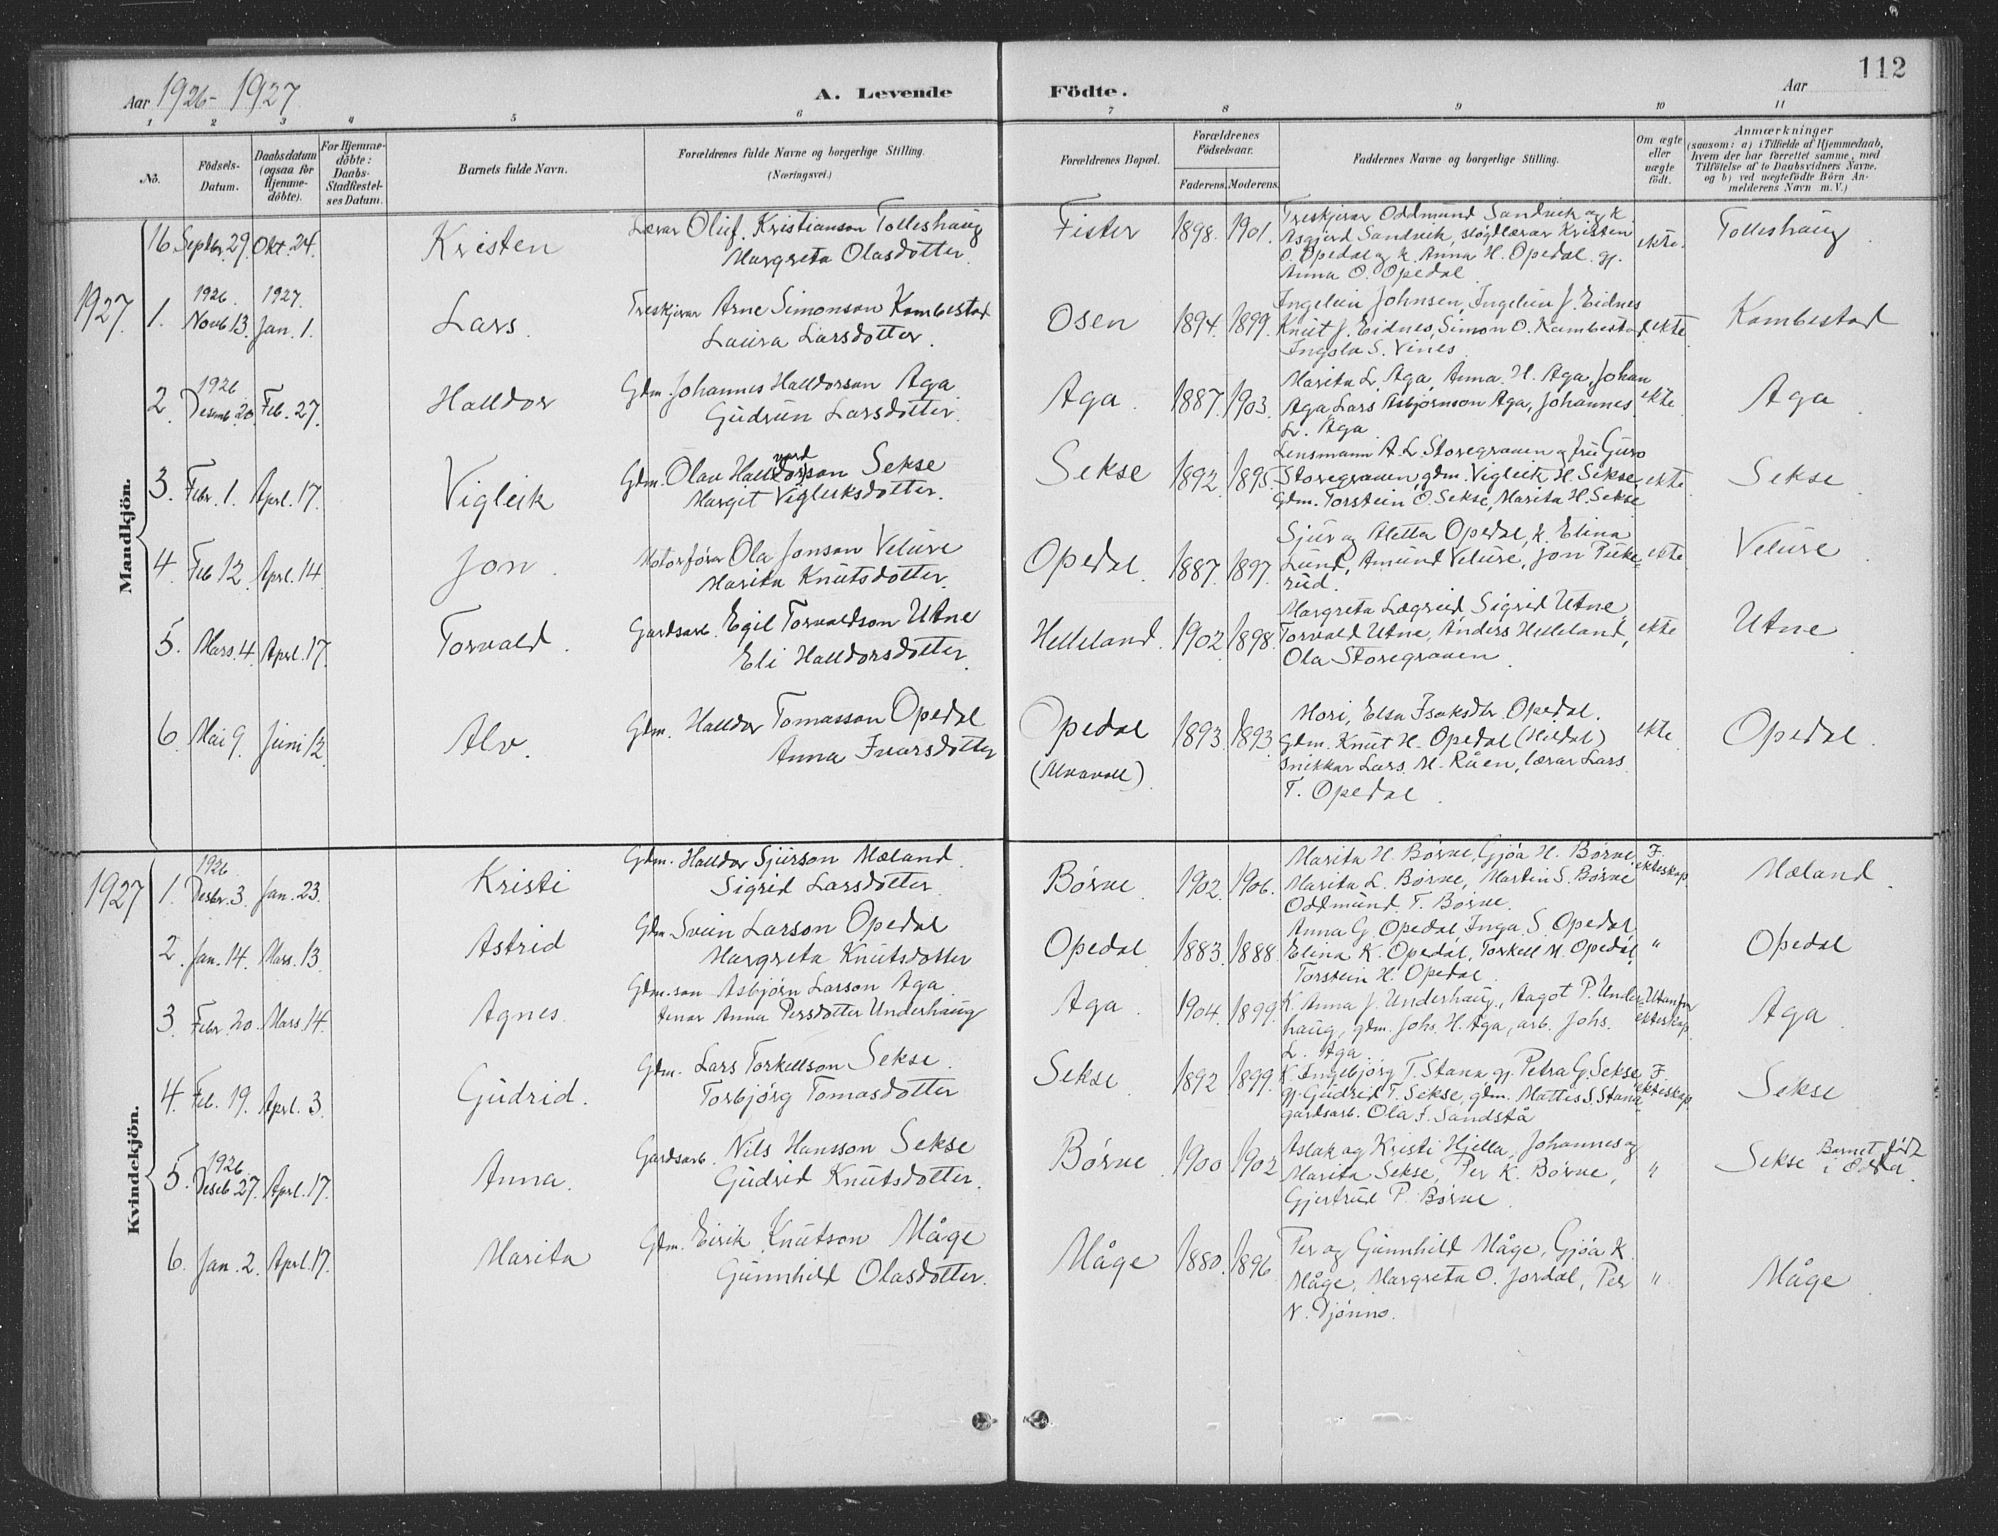 112
Aar 1926-1927. A. Levende Födte. Aar
1 2 3 4 5 6 7 8 9 10 11
No. Födsels-Datum. Daabsdatum (ogsaa for Hjemme-döbte). For Hjemme-döbte: Daabs-Stadfestel-ses Datum. Barnets fulde Navn. Forældrenes fulde Navne og borgerlige Stilling. (Næringsvei.) Forældrenes Bopæl. Forældrenes Födselsaar. Faderens. Moderens. Faddernes Navne og borgerlige Stilling. Om ægte eller uægte födt. Anmærkninger (saasom: a) i Tilfælde af Hjemmedaab, hvem der har forrettet samme, med Tilföielse af to Daabsvidners Navne, og b) ved uægtefödte Börn An-melderens Navn m. V.)
Mandkjön.
16 Septbr. 29. Okt. 24. Kristen Lærar Oluf Kristianson Tolleshaug Fister 1898. 1901. Treskjerar Oddmund Sandvik og k. ekte. Tolleshaug
Margreta Olasdotter. Asgjerd Sandvik, sløgdlærar Kristen
O. Opedal og k. Anna H. Opedal. gj.
Anna O. Opedal
1927 1. 1926 Novb 13. 1927. Jan. 1. Lars. Treskjerar Arne Simonson Kambestad Osen 1894. 1899. Ingelein Johnsen, Ingelein J. Eidnes ekte Kambestad
Laura Larsdotter. Knut J. Eidnes, Simon O. Kambestad
S. Vines
2. 1926 Desemb. 20. Feb. 27. Halldor Gdm. Johannes Halldorson Aga Aga. 1887. 1903. Marita L. Aga, Anna H. Aga, Johan ekte Aga
Gudrun Larsdotter. Aga, Lars Asbjørnson Aga, Johannes
L. Aga
3. Febr. 1. Aprl. 17. Vigleik Gdm. Olav Hallvardson Sekse Sekse 1892. 1895. Lensmann A. L. Storegraven og fru Guro ekte Sekse
Margit Vigleiksdotter. Storegraven, gdm. Vigleik H. Sekse,
Gdm. Torstein O. Sekse, Marita H. Sekse
4. Feb 12. Aprl. 14. Jon. Motorførar Ola Jonson Velure Opedal 1887. 1897. Sjur og Aletta Opedal, k. Elina ekte Velure
Marita Knutsdotter. Lund, Amund Velure, Jon
rud.
5. Mars. 4. Aprl. 17. Torvald Gardsarb. Egil Torvaldson Utne Helleland. 1902. 1898. Margreta Lægreid, Sigrid Utne, ekte Utne
Eli Halldorsdotter. Torvald Utne, Anders Helleland,
Ola Storegraven
6. Mai 9. Juni 12. Alv. Gdm. Halldor Tomasson Opedal Opedal 1893. 1893. Mori, Elsa Isaksdtr. Opedal. ekte. Opedal
Anna Ivarsdotter Gdm. Knut H. Opedal (Hildal)
snikkar Lars M. Råen, lærar Lars
T. Opedal
Kvindekjön.
1927 1. 1926 Desbr. 3. Jan. 23. Kristi Gdm. Halldor Sjurson Mæland Børve 1902. 1906. Marita H. Børve, Gjøa H. Børve F. ekteskap Mæland.
Sigrid Larsdotter. Marita L. Børve, Martin S. Børve
Oddmund T. Børve.
2. Jan. 14. Mars. 13. Astrid Gdm Svein Larson Opedal Opedal 1883. 1888. Anna G. Opedal Inga S. Opedal, " Opedal
Margreta Knutsdotter Elina K. Opedal, Torkell M. Opedal,
Torstein H. Opedal.
3. Febr. 20. Mars 14. Agnes. Gdm.son Asbjørn Larson Aga Aga. 1904. 1899. K. Anna J. Underhaug, Aagot P. Under- Utanfor ekteskap. Aga
tenar Anna Persdotter Underhaug haug, gdm. Johs. H. Aga, arb. Johs.
L. Aga
4. Feb. 19. Aprl. 3. Gudrid. Gdm. Lars Torkellson Sekse Sekse 1892 1899. K. Ingebjørg T. Stana gj. Petra G. Sekse, F. ekteskap Sekse
Torbjørg Tomasdotter gj. Gudrid T. Sekse, gdm. Mattis S. Stana,
gardsarb. Ola F. Sandstå
5. 1926 Deseb 27. Aprl. 17. Anna. Gardsarb. Nils Hansson Sekse Børve 1900 1902 Aslak og Kristi Hjella, Johannes og " Sekse Barnet född i
Gudrid Knutsdotter. Marita Sekse, Per K. Børve,
Gjertrud P. Børve
6. Jan. 2. Aprl. 17. Marita Gdm. Eirik Knutson Måge Måge 1880. 1896. Per og Gunnhild Måge, Gjøa K. " Måge
Gunnhild Olasdotter. Måge, Margreta O. Jordal, Per
N. Djønno.